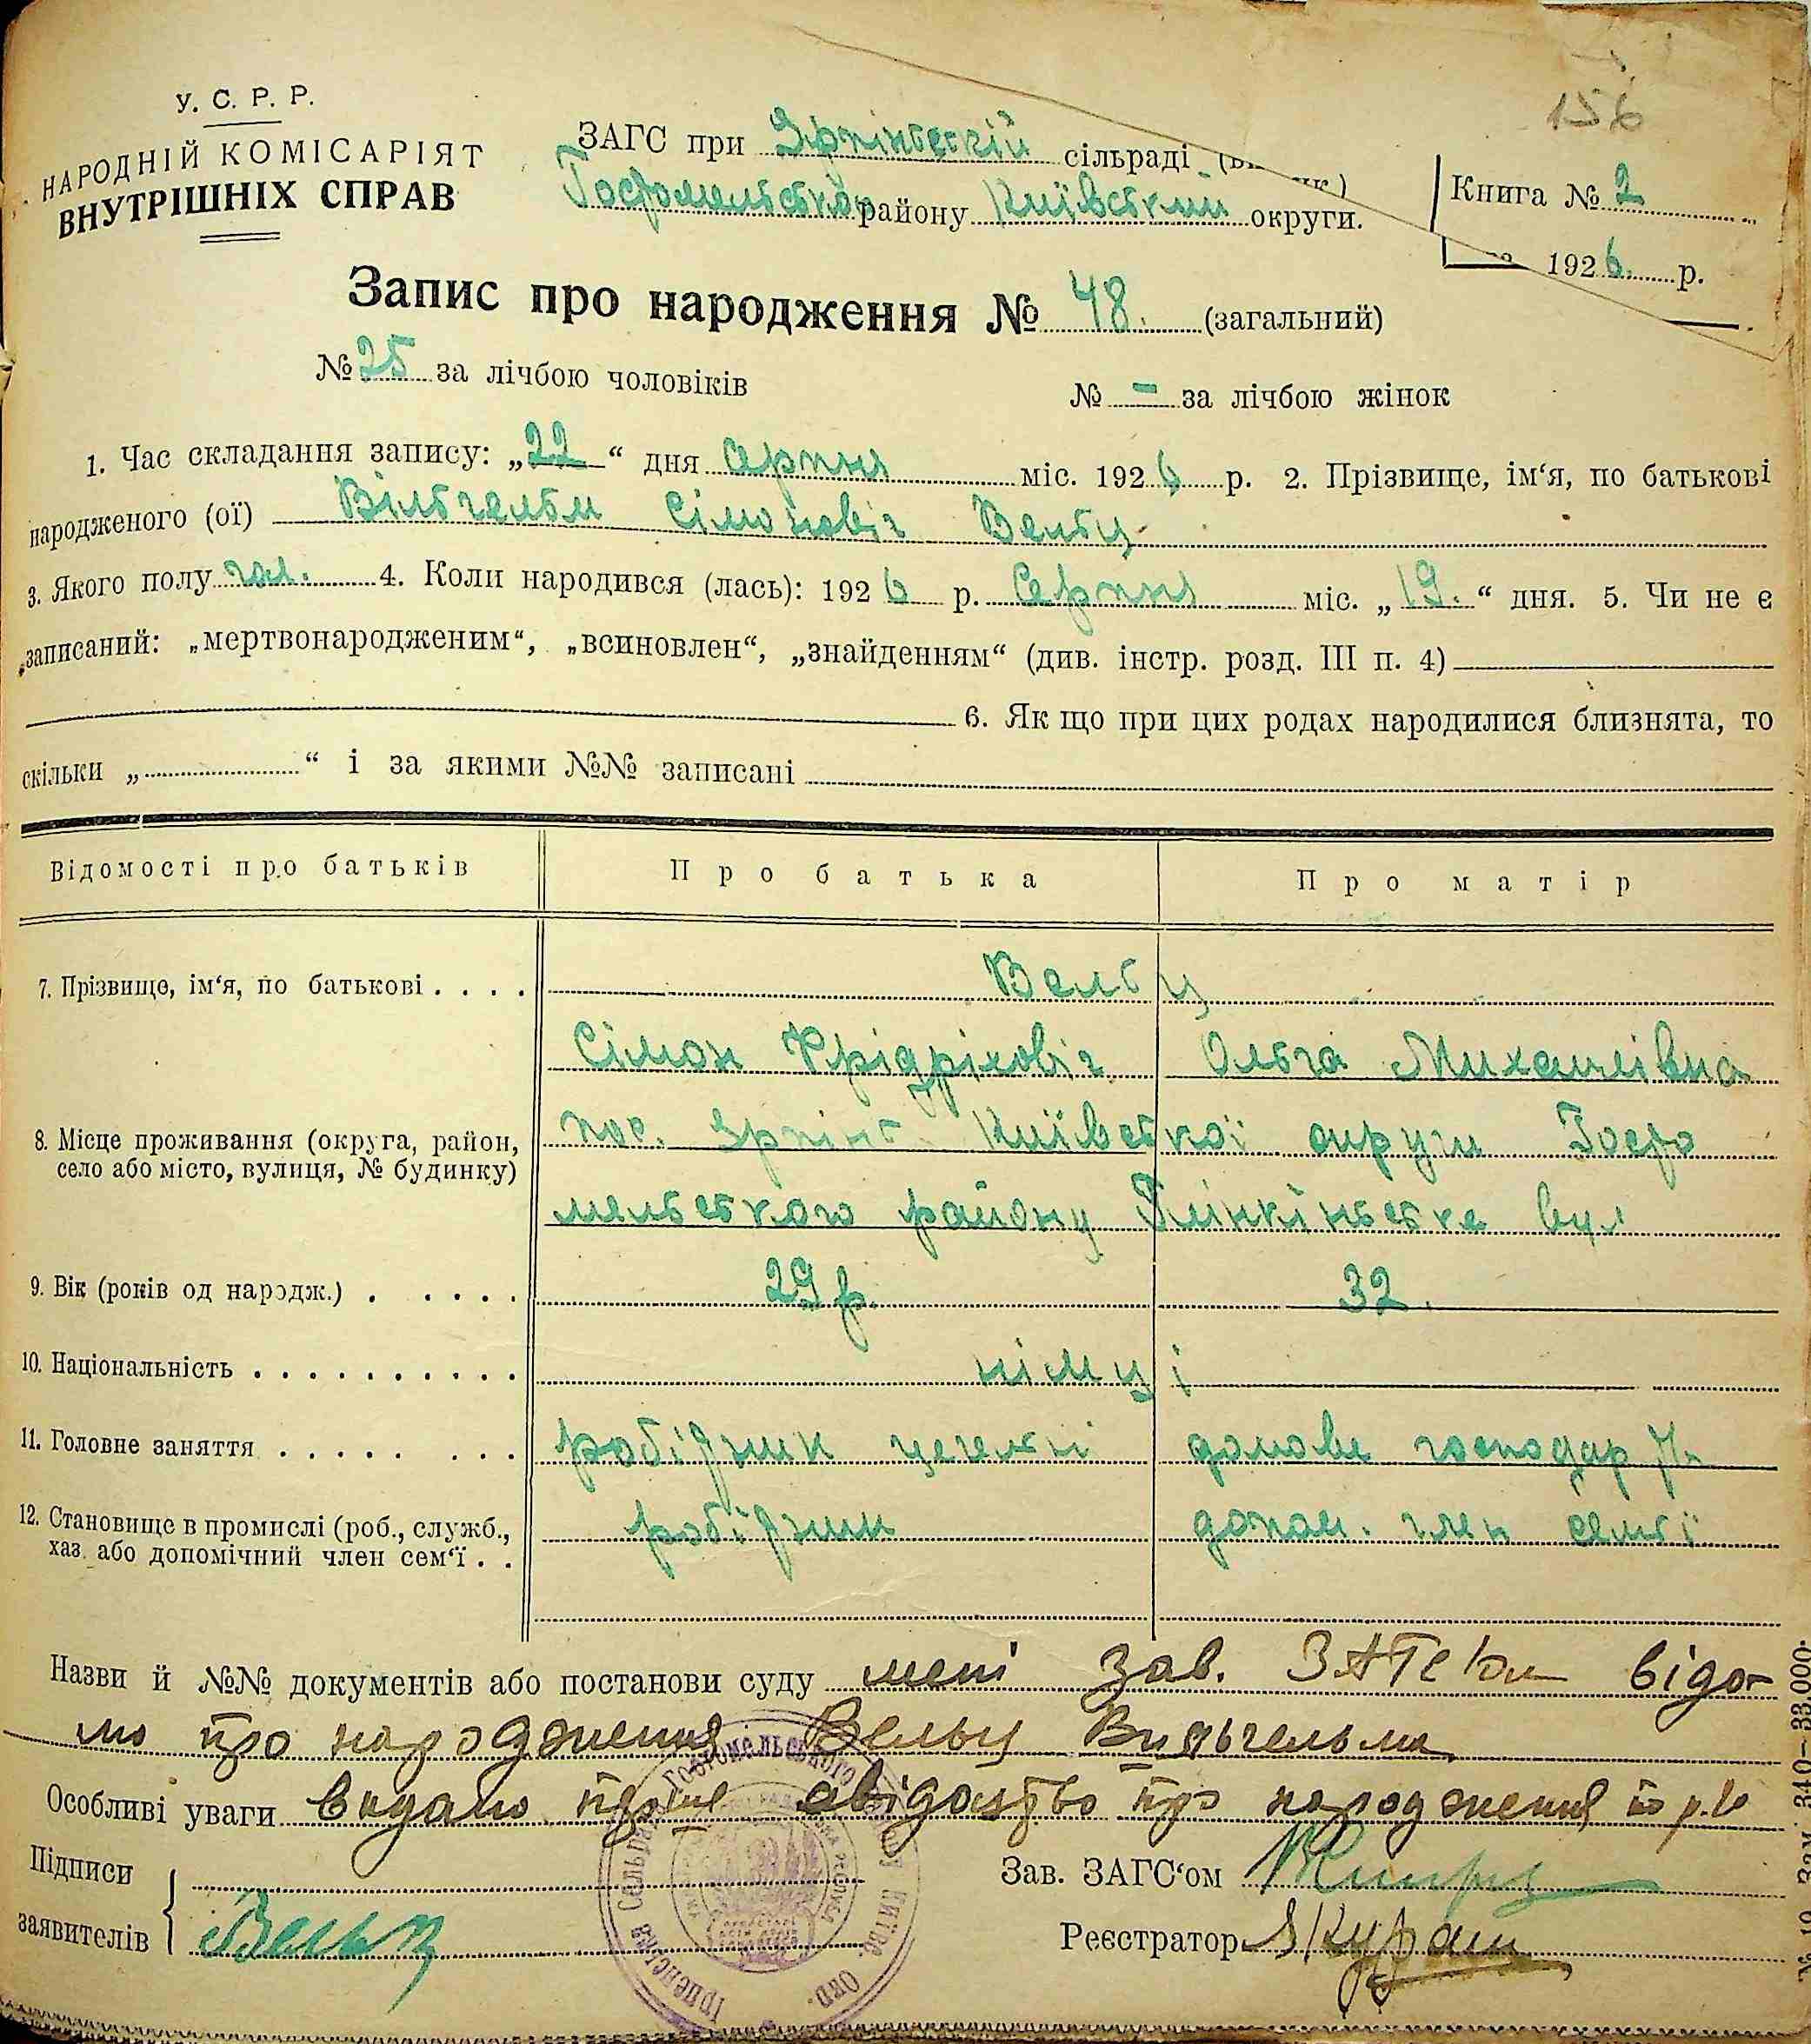 156
У. С. Р. Р.
НАРОДНІЙ КОМІСАРІЯТ
ВНУТРІШНІХ СПРАВ
ЗАГС при Ірпінській сільраді
Гостомельського району Київської округи.
Книга № 2
1926 р.
Запис про народження № 48. (загальний)
№ 25 за лічбою чоловіків № - за лічбою жінок
1. Час складання запису: „22“ дня серпня міс. 1926 р. 2. Прізвище, ім‘я, по батькові
народженого (ої) Вільгельм Сімоновіч Вельц
3. Якого полу чол. 4. Коли народився (лась): 1926 р. Серпня міс. „19.“ дня. 5. Чи не є
записаний: „мертвонародженим“, „всиновлен“, „знайденням“ (див. інстр. розд. III п. 4)
6. Як що при цих родах народилися близнята, то
скільки „ “ і за якими №№ записані
Відомості про батьків Про батька Про матір
7. Прізвище, ім‘я, по батькові . . . . Вельц
Сімон Фрідріховіч Ольга Михайлівна
8. Місце проживання (округа, район, пос. Ірпінь Київської округи Госто
село або місто, вулиця, № будинку)
мельского району вул
9. Вік (років од народж.) . . . . . 29 р. 32.
10. Національність . . . . . . . . . . німці
11. Головне заняття . . . . . . . . робітник цегельні домове господар
12. Становище в промислі (роб., служб., робітник допом. член семьї
хаз. або допомічний член сем‘ї . .
Назви й №№ документів або постанови суду мені зав. ЗАГСом відо-
мо про народження Вельц Вильгельма
Особливі уваги видано перше свідоцтво про народження
Підписи
заявителів Вельц
Зав. ЗАГС‘ом
Реєстратор